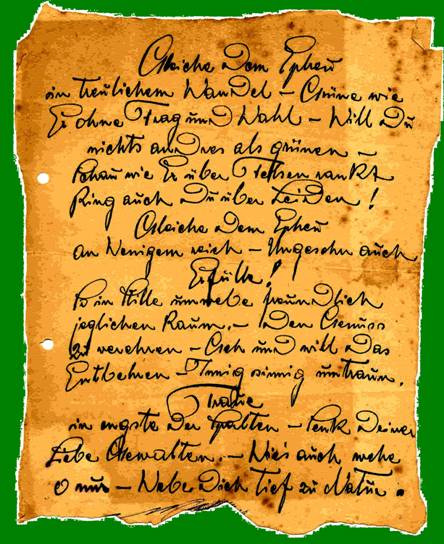 Gleiche dem Epheu
in treulichem Wandel – Grüne wie
Er ohne Frag und Wahl – Will Du
nichts andres als grünen –
Schau wie Er über Felsen rankt
Ring auch Du über Leiden!
Gleiche dem Epheu
an Wenigem reich – Ungesehn auch
Erfülle!
So in Stille umwebe freundlich
jeglichen Raum. – Den Genuss
zu verehren – Geh und will das
Entbehren – Innig sinnig
in engste der Spalten – senk Deiner
Liebe Gewalten. – Wie's auch wehe
o nur – Webe Dich tief zu